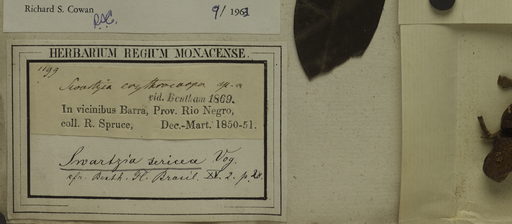 Richard S. Cowan 9/1961
RSC.
HERBARIUM REGIUM MONACENSE.
1199
Swartzia erythrocarpa sp. n
vid. Bentham 1869.
In vicinibus Barra, Prov. Rio Negro,
coll. R. Spruce, Dec.-Mart. 1850-51.
Swartzia sericea Vog.
cfr. Benth. Fl. Brasil. XV. 2. p.